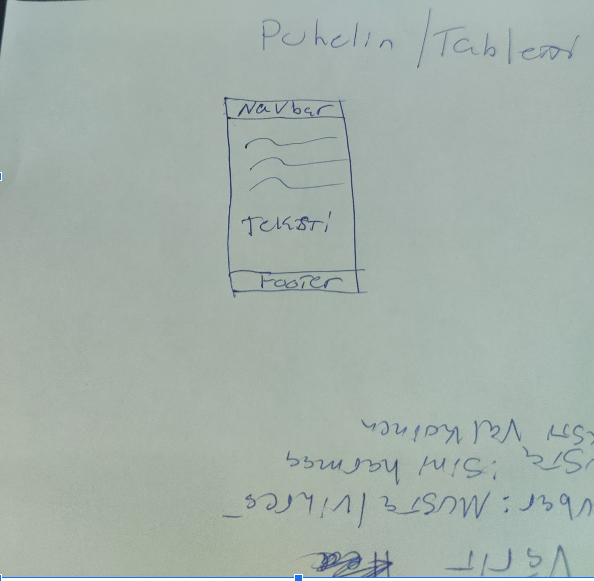 Puhelin / Tabletti
Navbar
TEKSTI
Footer
Värit
vbar: Musta/vihreä
sta: Sini harmaa
sti Valkoinen